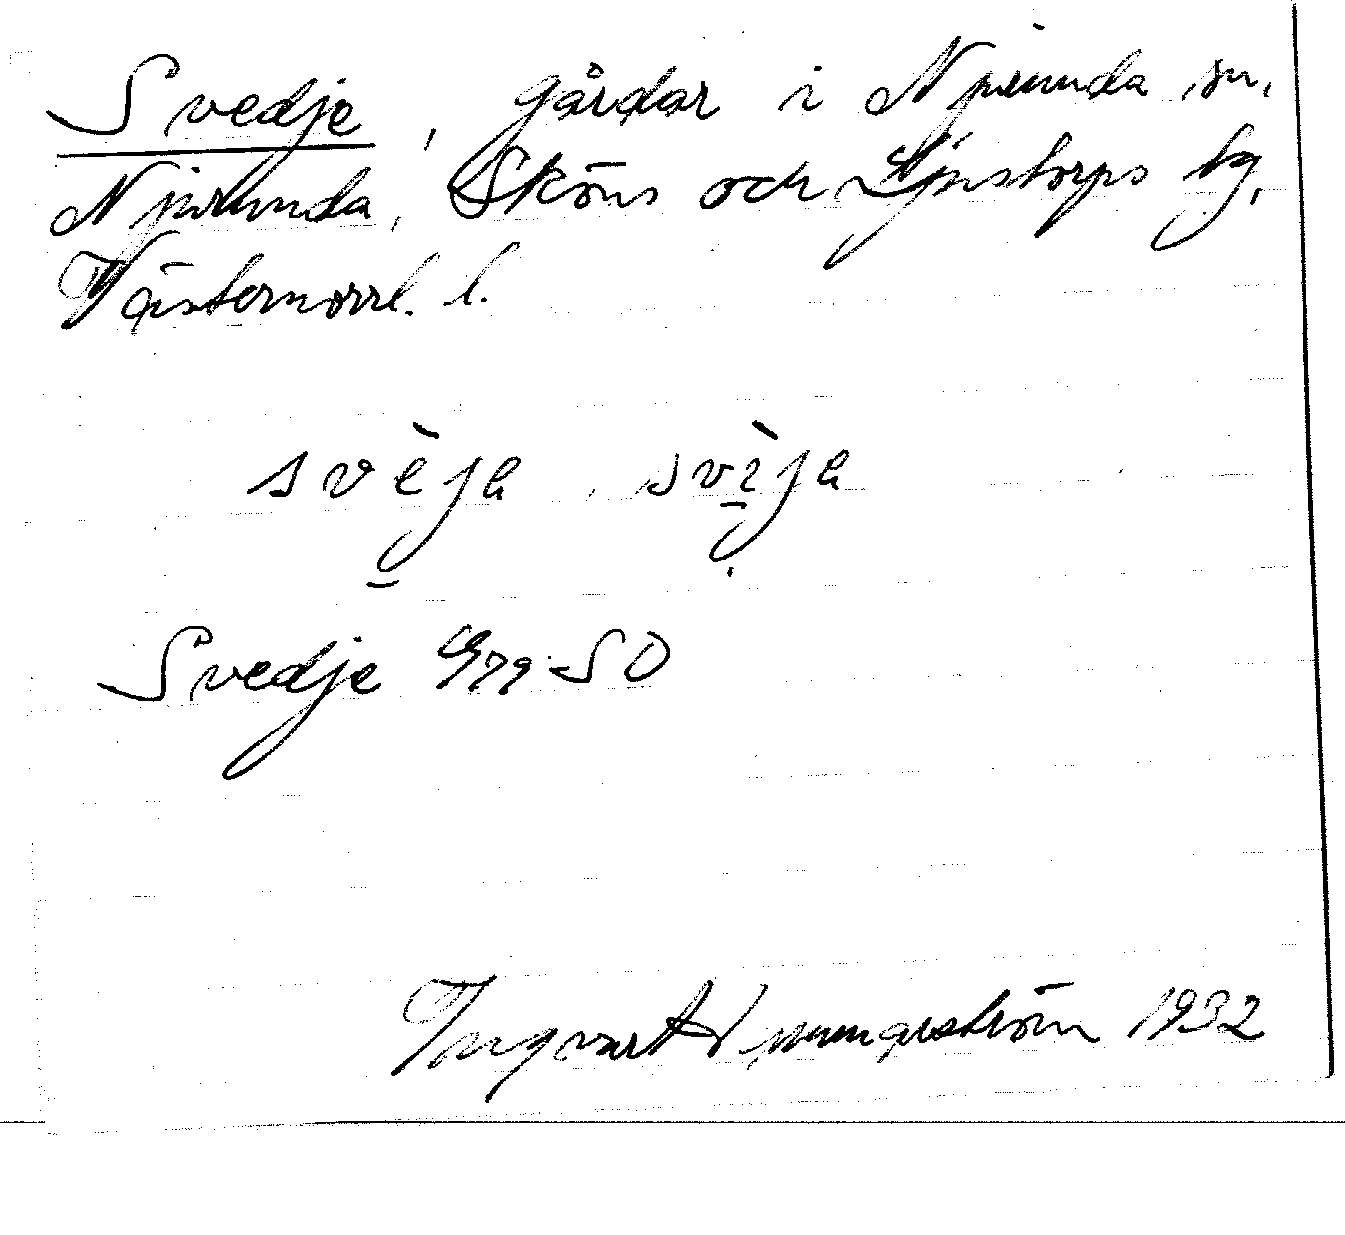 Svedje, gårdar i Njurunda sn,
Njurunda, Sköns och Ljustorps tg,
Västernorrl. l.
svèja, svèja
Svedje SO
Ingvart 1932